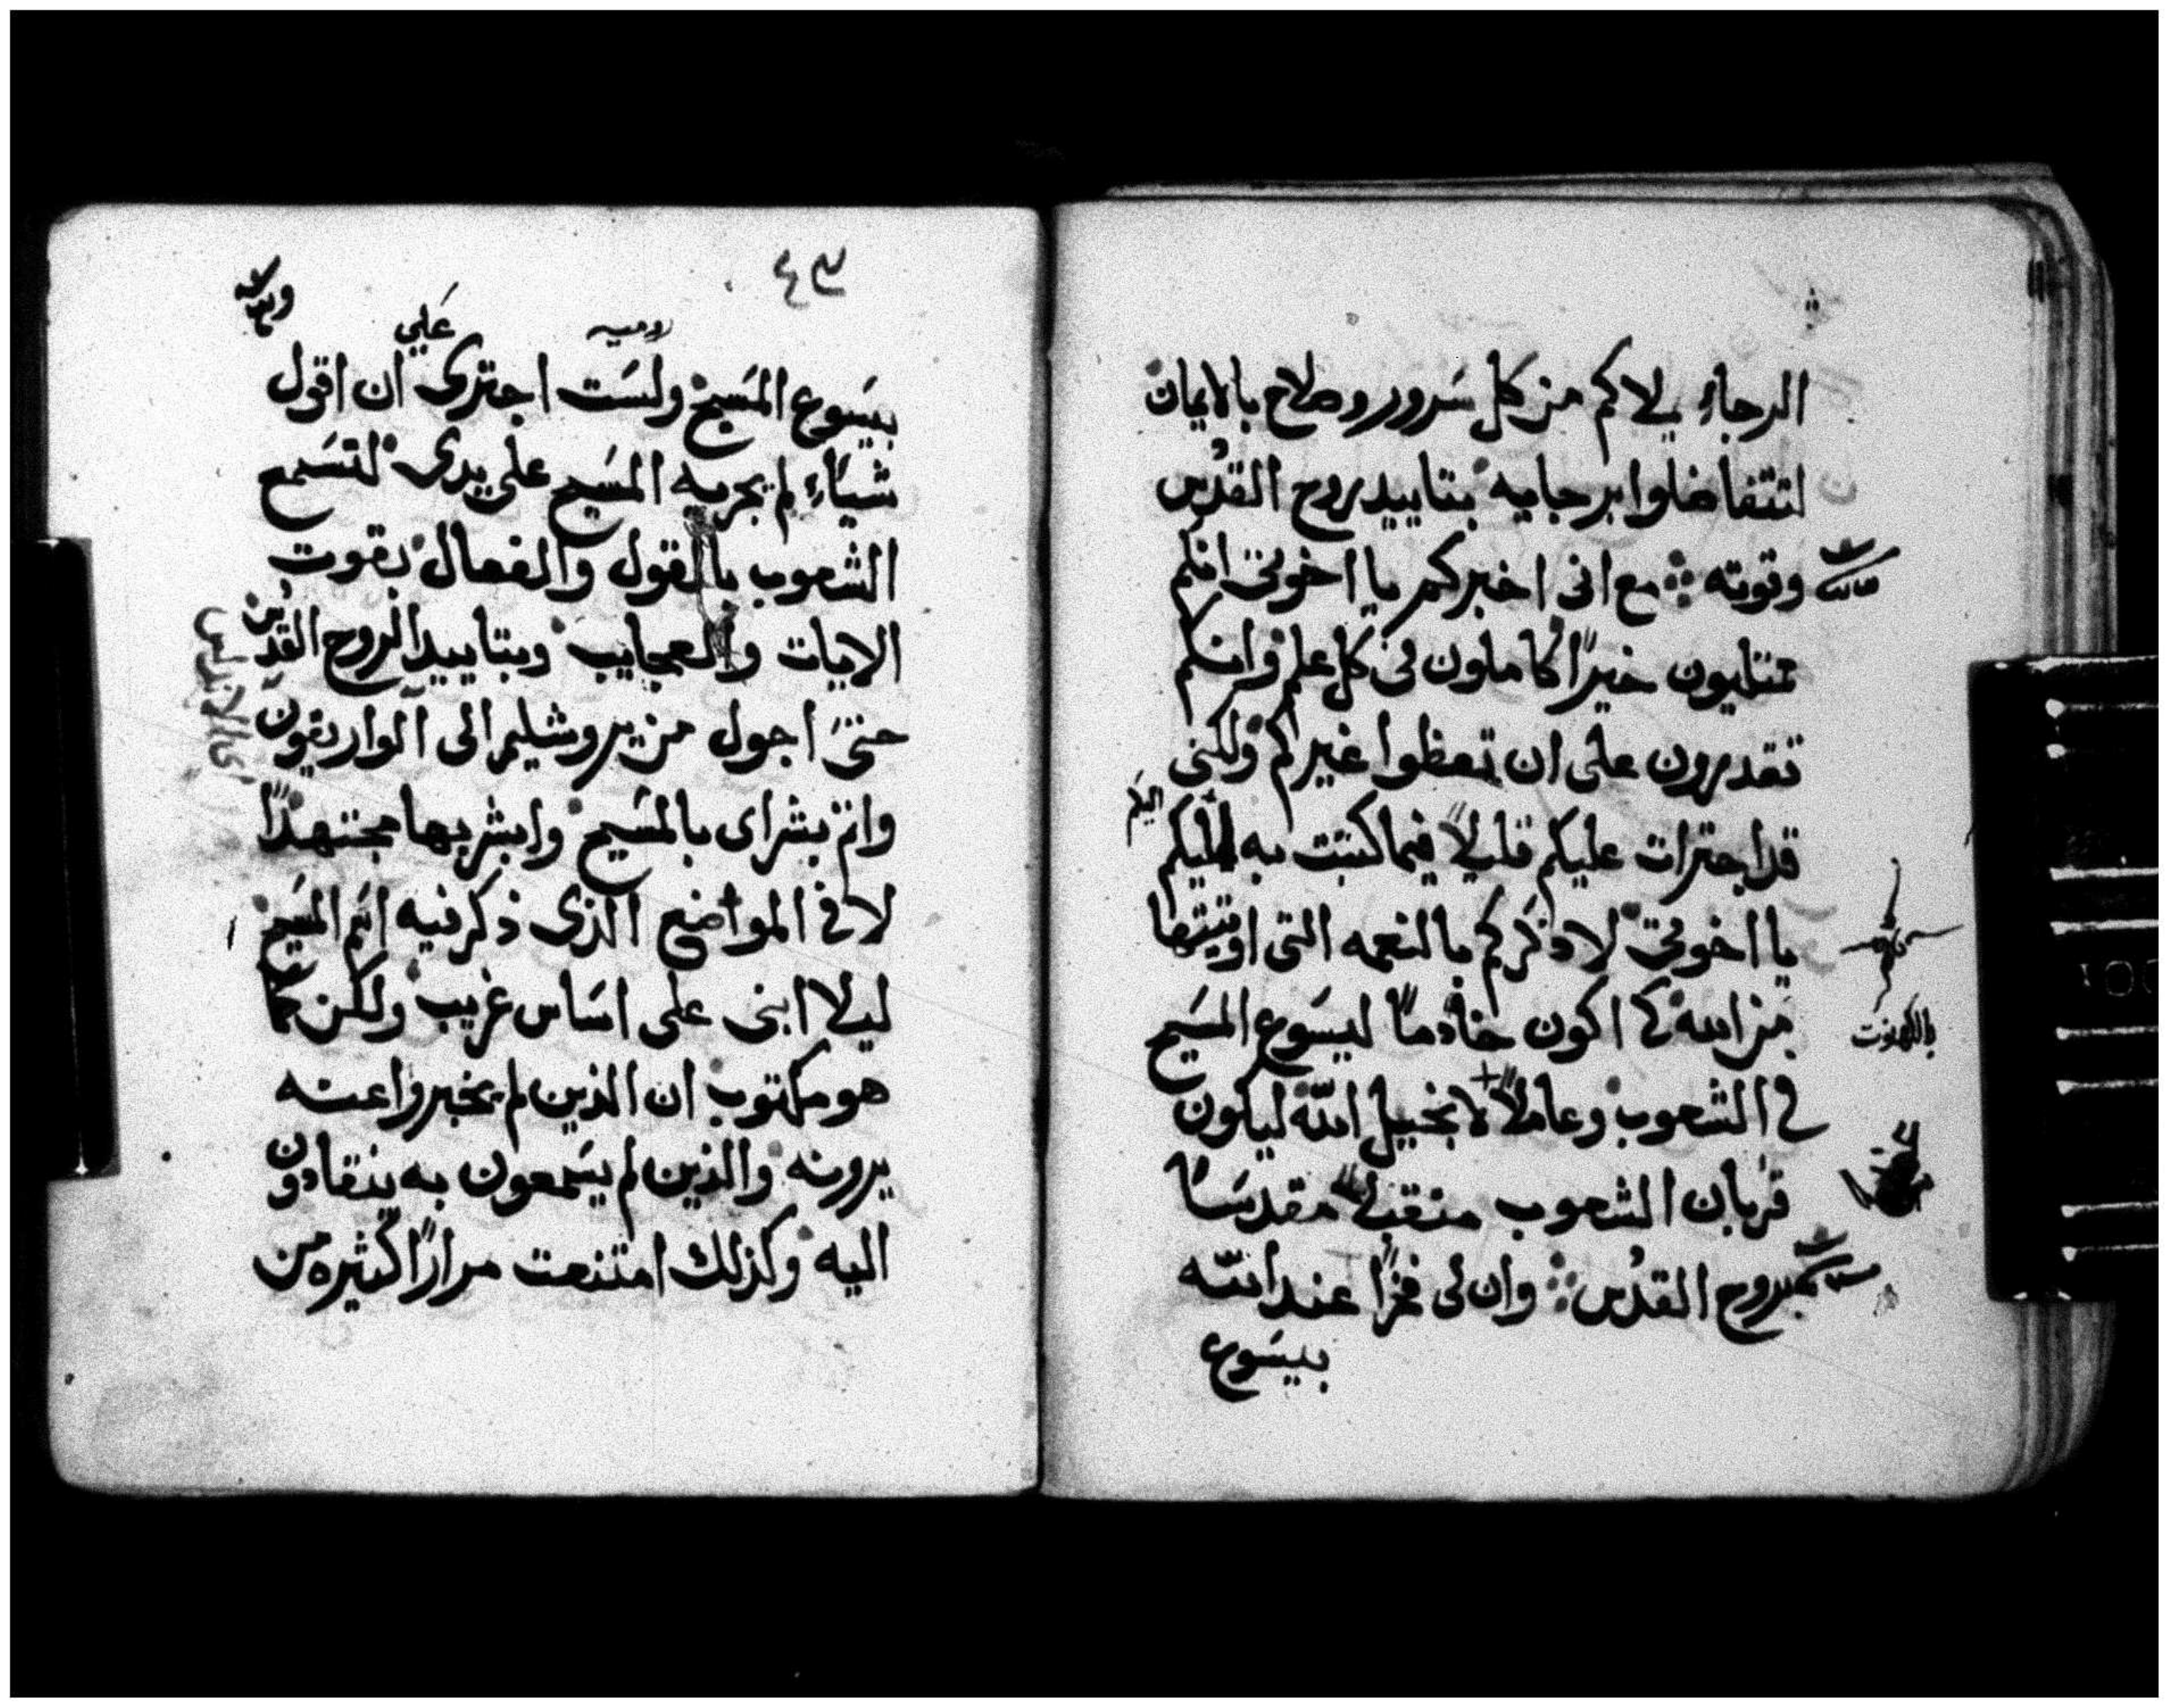 الرجاء يملاكم من كل سرور وصلاح بالايمان
لتتفاضلوا برجايه بتاييد روح القدس
وقوته مع انى اخبركم يا اخوتى انكم
ممتليون خيرًا كاملون فى كل علم وانكم
تقدرون على ان تعظوا غيركم ولكنى
قد اجترات عليكم قليلاً فيما كتبت به اليكم
اليكم
يا اخوتى لاذكركم بالنعمه التى اوتيتها
من الله كى اكون خادمًا ليسوع المسيح
بالكهنوت
فى الشعوب وعاملاً لانجيل الله ليكون
قربان الشعوب متقبلاً مقدسًا
بروح القدس وان لى فخرًا عند الله
بيسوع
٤٣
روميه
على
بيسوع المسيح ولست اجترى ان اقول
شياء لم يجريه المسيح على يدى لتسمع
الشعوب بالقول والفعال بقوت
الايات والعجايب وبتاييد الروح القدس
حتى اجول من يروشليم الى الواريقون
واتم بشراى بالمسيح وابشر بها مجتهدًا
لا فى المواضع الذى ذكر فيه اسم المسيح
ليلا ابنى على اساس غريب ولكن كما
هو مكتوب ان الذين لم يخبروا عنه
يرونه والذين لم يسمعون به ينقادون
اليه وكذلك امتنعت مرارًا كثيره من